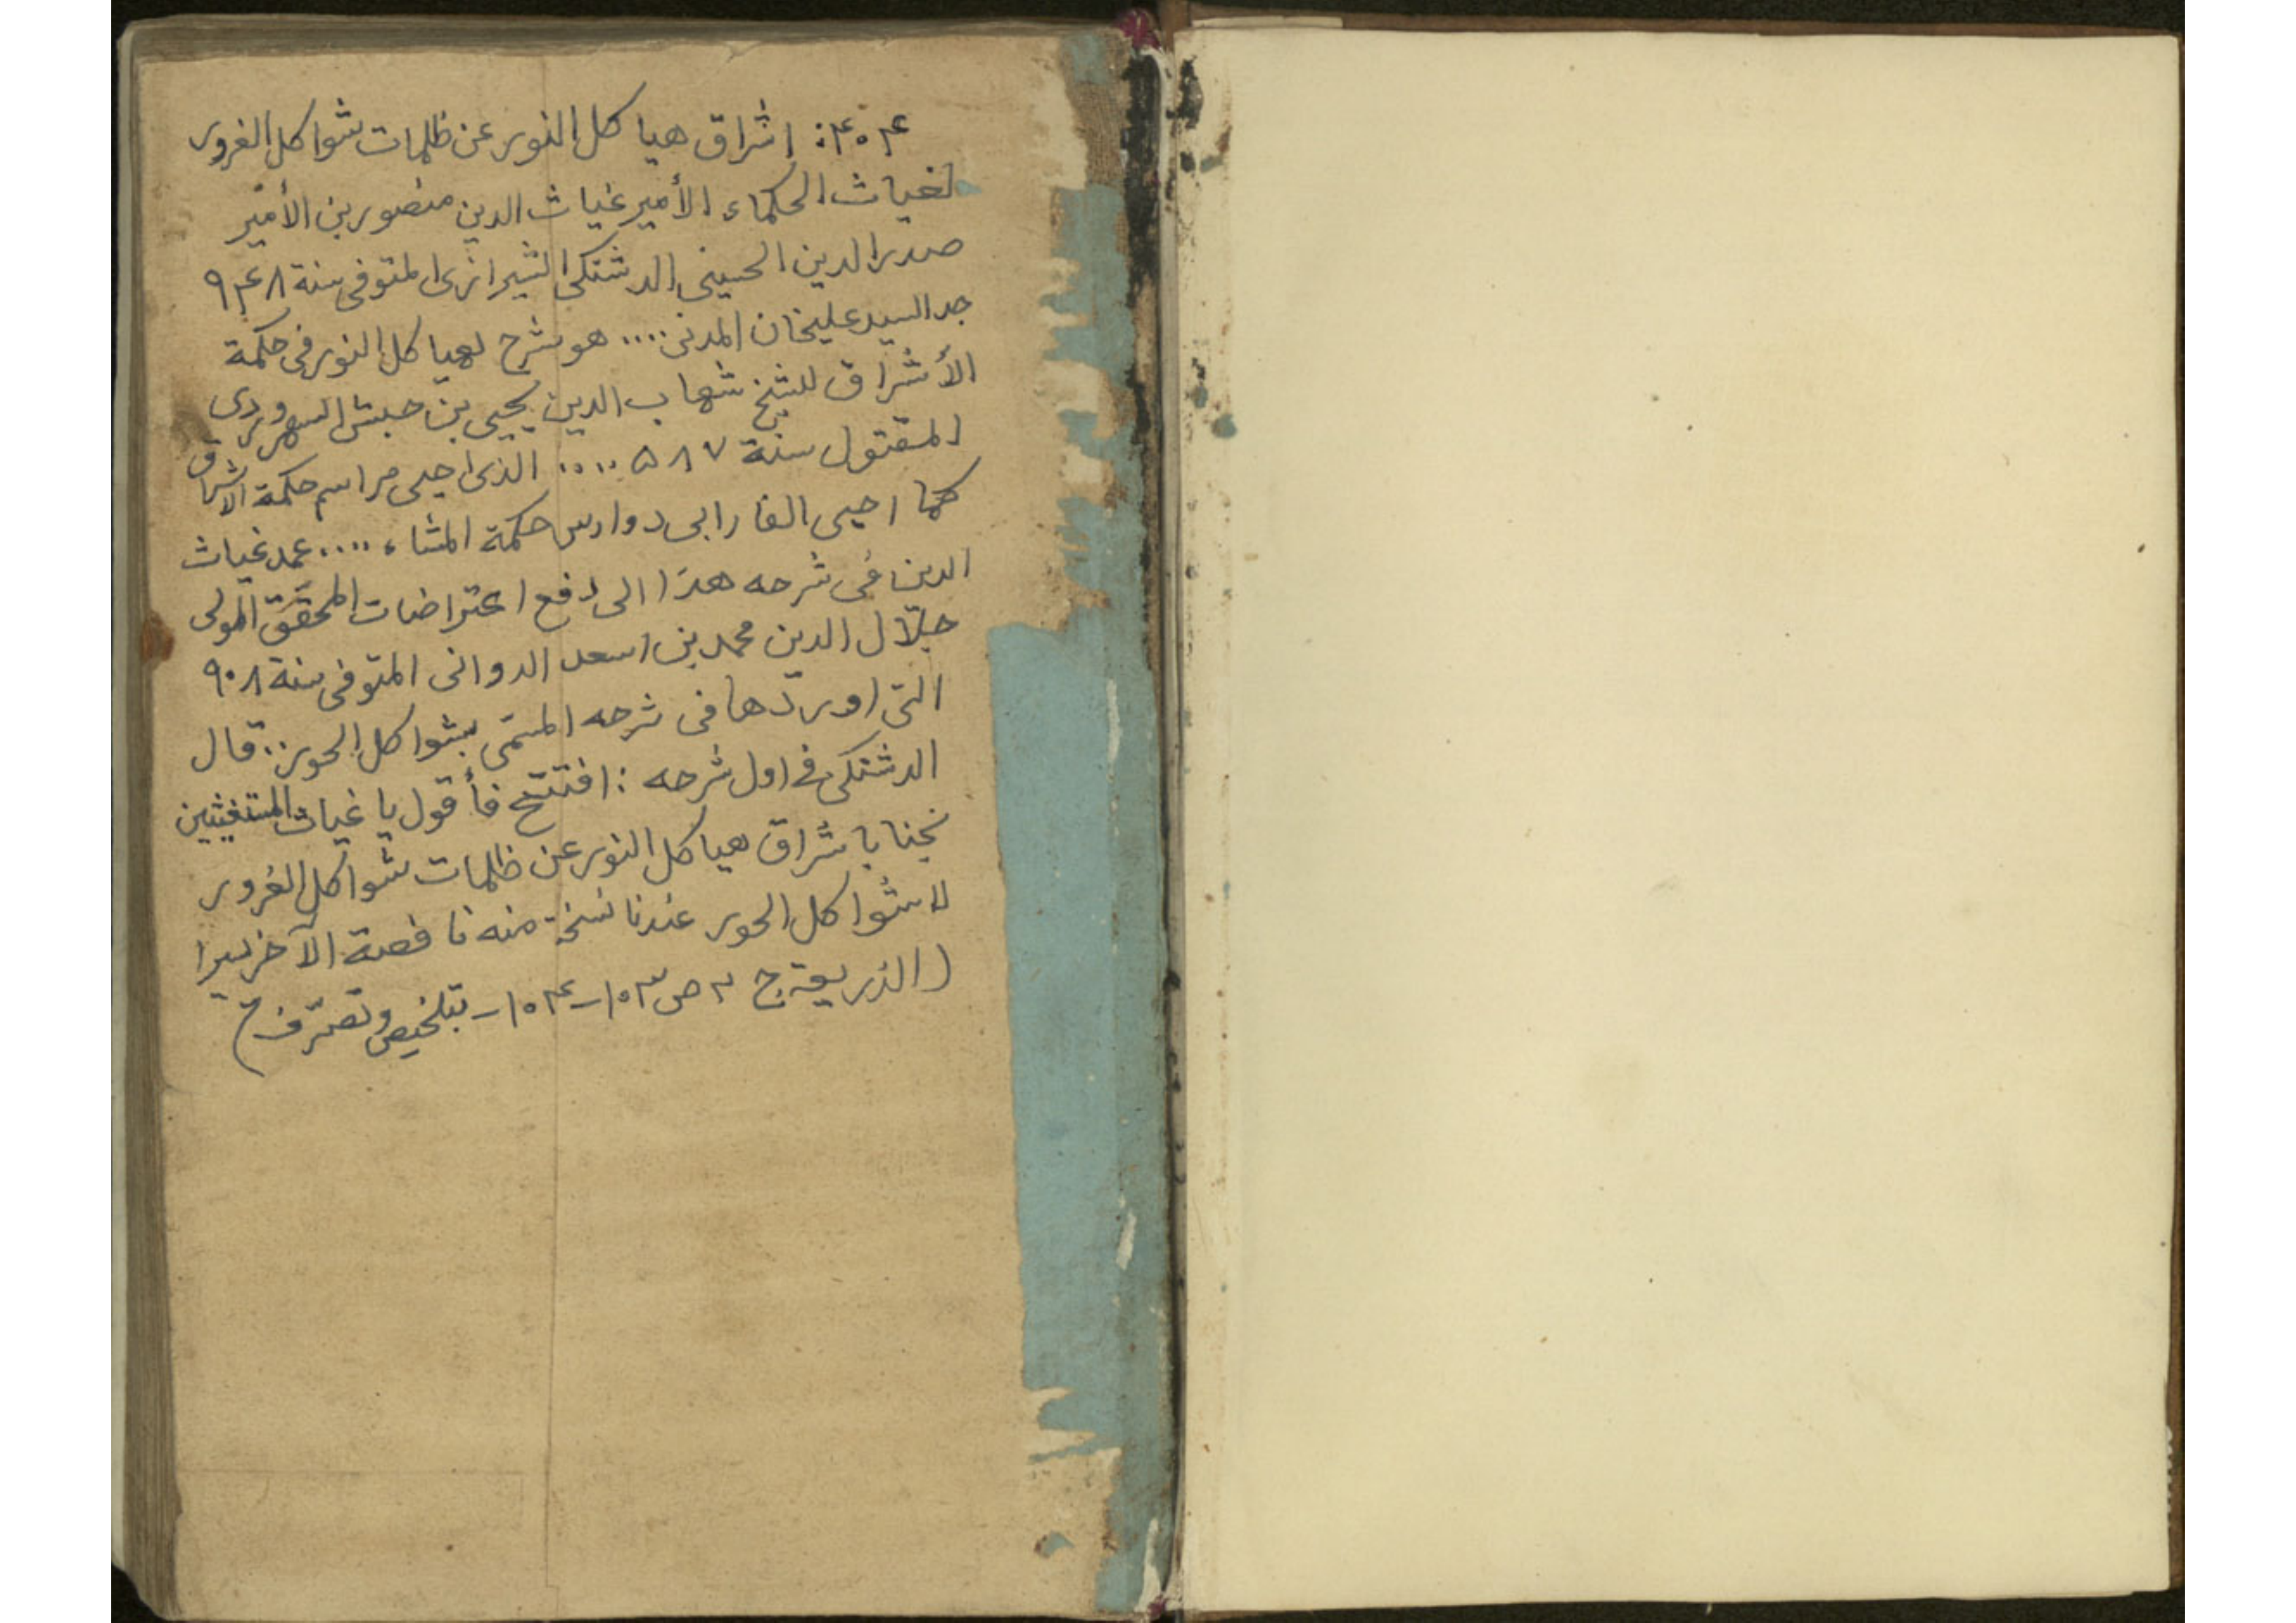 ۴۰۴: اشراق هياكل النور عن ظلمات شواكل الغرور
لغياث الحكماء الأمير غياث الدين منصور بن الأمير
صدر الدين الحسينى الدشتكى الشيرازى المتوفى سنة ۹۴۸
جد السيد عليخان المدنى .... هو شرح لهياكل النور فى حكمة
الأشراق للشيخ شهاب الدين يحيى بن حبش السهروردى
المقتول سنة ۵۸۷ .... الذى احيى مراسم حكمة الاشراق
كما احيى الفارابى دوارس حكمة المشاء .... عمد غياث
الدين فى شرحه هذا الى دفع اعتراضات المحقّق المولى
جلال الدين محمد بن اسعد الدوانى المتوفى سنة ۹۰۸
التى اوردها فى شرحه المسمّى بشواكل الحور .. قال
الدشتكى فى اول شرحه : افتتح فأقول يا غياث المستغيثين
نجنا باشراق هياكل النور عن ظلمات شواكل الغرور
لا شواكل الحور عندنا نسخة منه ناقصة الآخر يسيرا
(الذريعة ج ۲ ص ۱۰۳-۱۰۴- بتلخيص وتصرّف)